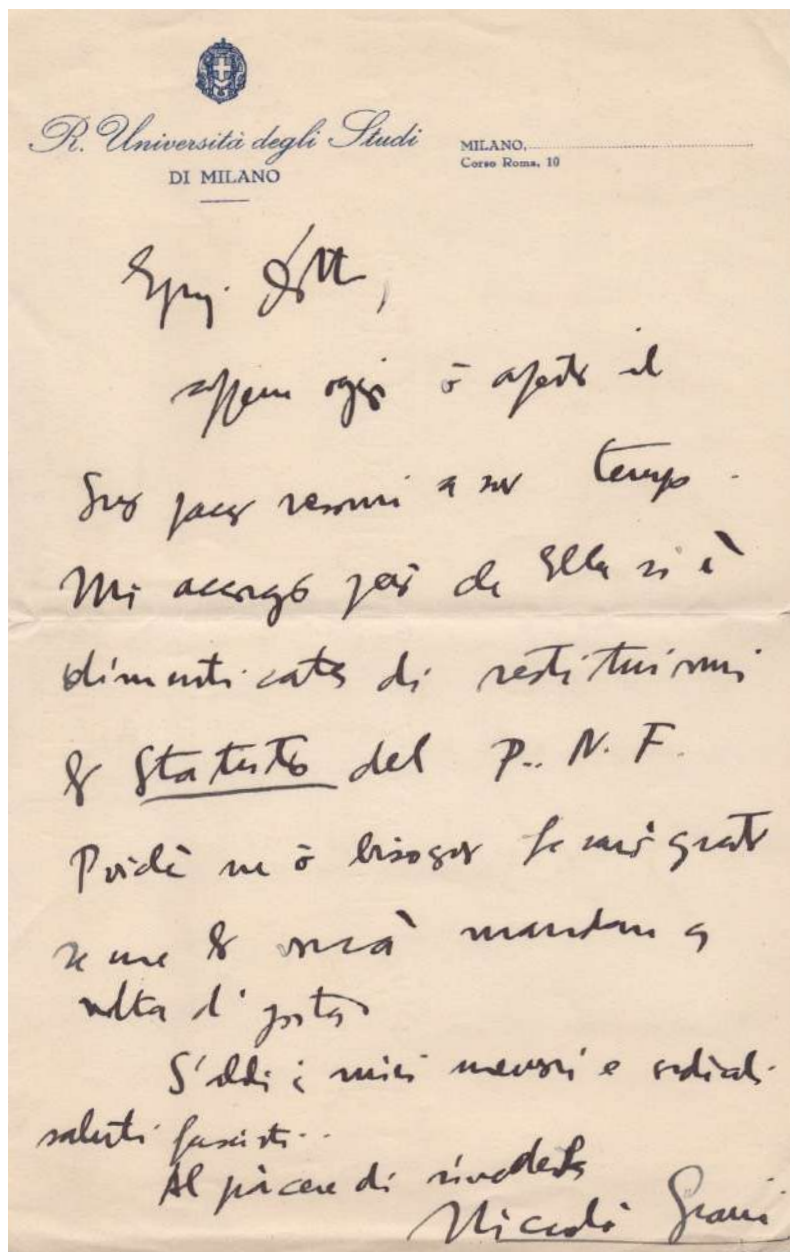 R. Università degli Studi
DI MILANO
MILANO,
Corso Roma, 10
Egreg. Dott.,
appena oggi ò aperto il
Suo pacco resomi a suo tempo.
Mi accorgo però che Ella si è
dimenticato di restituirmi
lo Statuto del P. N. F.
Poichè ne ò bisogno Le sarò grato
se me lo vorrà mandare a
volta di posta
i miei memori e cordiali
saluti fascisti..
Al piacere di rivederLa
Niccolò Giani